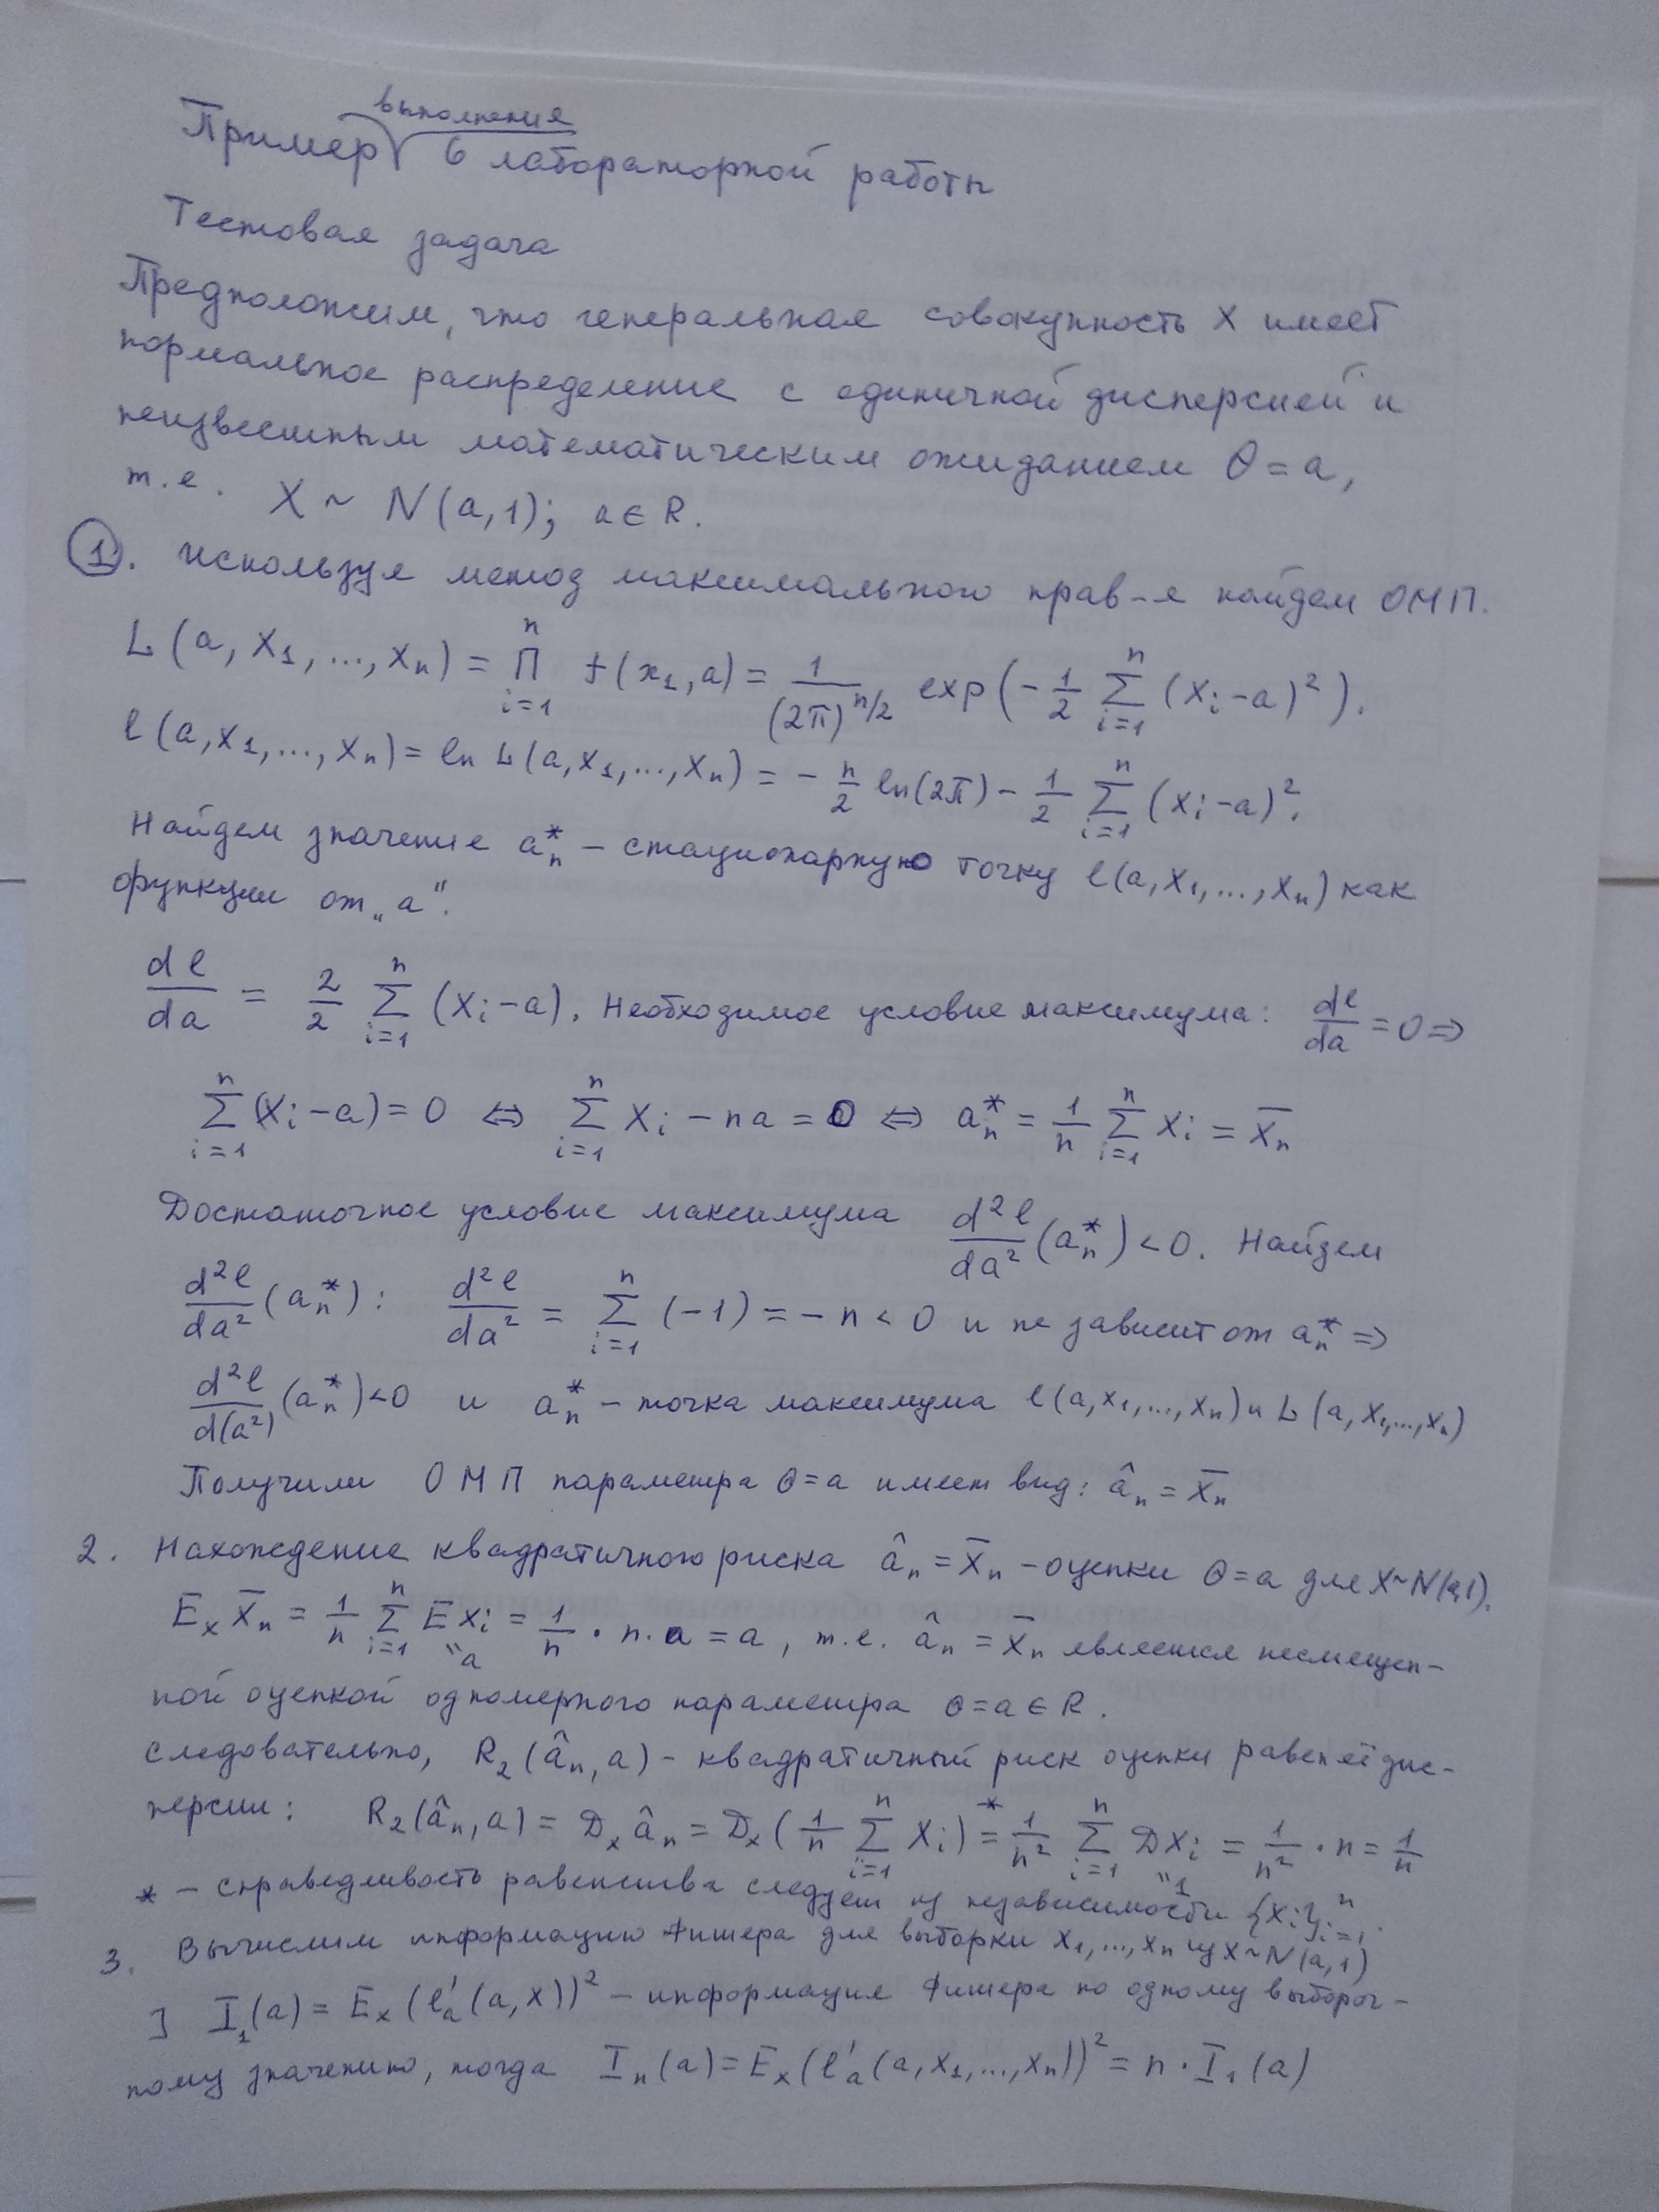 выполнения
Пример 6 лабораторной работы
Тестовая задача
Предположим, что генеральная совокупность X имеет
нормальное распределение с единичной дисперсией и
неизвестным математическим ожиданием θ = a,
т.е. X ~ N(a,1); a ∈ R.
1. Используя метод максимального прав-я найдем ОМП.
L(a, X₁, ..., Xₙ) = ∏ᵢ₌₁ⁿ f(x₁, a) = 1/(2π)^(n/2) exp(-1/2 ∑ᵢ₌₁ⁿ (Xᵢ - a)²).
l(a, X₁, ..., Xₙ) = ln L(a, X₁, ..., Xₙ) = - n/2 ln(2π) - 1/2 ∑ᵢ₌₁ⁿ (Xᵢ - a)².
Найдем значение aₙ* – стационарную точку l(a, X₁, ..., Xₙ) как
функции от „a".
dl/da = 2/2 ∑ᵢ₌₁ⁿ (Xᵢ - a). Необходимое условие максимума: dl/da = 0 ⇒
∑ᵢ₌₁ⁿ (Xᵢ - a) = 0 ⇔ ∑ᵢ₌₁ⁿ Xᵢ - na = 0 ⇔ aₙ* = 1/n ∑ᵢ₌₁ⁿ Xᵢ = X̄ₙ
Достаточное условие максимума d²l/da² (aₙ*) < 0. Найдем
d²l/da² (aₙ*): d²l/da² = ∑ᵢ₌₁ⁿ (-1) = - n < 0 и не зависит от aₙ* ⇒
d²l/d(a²) (aₙ*) < 0 и aₙ* – точка максимума l(a, X₁, ..., Xₙ) и L(a, X₁, ..., Xₙ)
Получили ОМП параметра θ = a имеет вид: âₙ = X̄ₙ
2. Нахождение квадратичного риска âₙ = X̄ₙ – оценки θ = a для X ~ N(a,1).
Eₓ X̄ₙ = 1/n ∑ᵢ₌₁ⁿ E Xᵢ = 1/n · n · a = a, т.е. âₙ = X̄ₙ является несмещен-
"a
ной оценкой одномерного параметра θ = a ∈ R.
Следовательно, R₂(âₙ, a) – квадратичный риск оценки равен её дис-
персии: R₂(âₙ, a) = Dₓ âₙ = Dₓ(1/n ∑ᵢ₌₁ⁿ Xᵢ) =* 1/n² ∑ᵢ₌₁ⁿ DXᵢ = 1/n² · n = 1/n
"1
* – справедливость равенства следует из независимости {Xᵢ}ᵢ₌₁ⁿ.
3. Вычислим информацию Фишера для выборки X₁, ..., Xₙ из X ~ N(a,1)
] I₁(a) = Eₓ(l'ₐ(a, X))² – информация Фишера по одному выбороч-
ному значению, тогда Iₙ(a) = Eₓ(l'ₐ(a, X₁, ..., Xₙ))² = n · I₁(a)